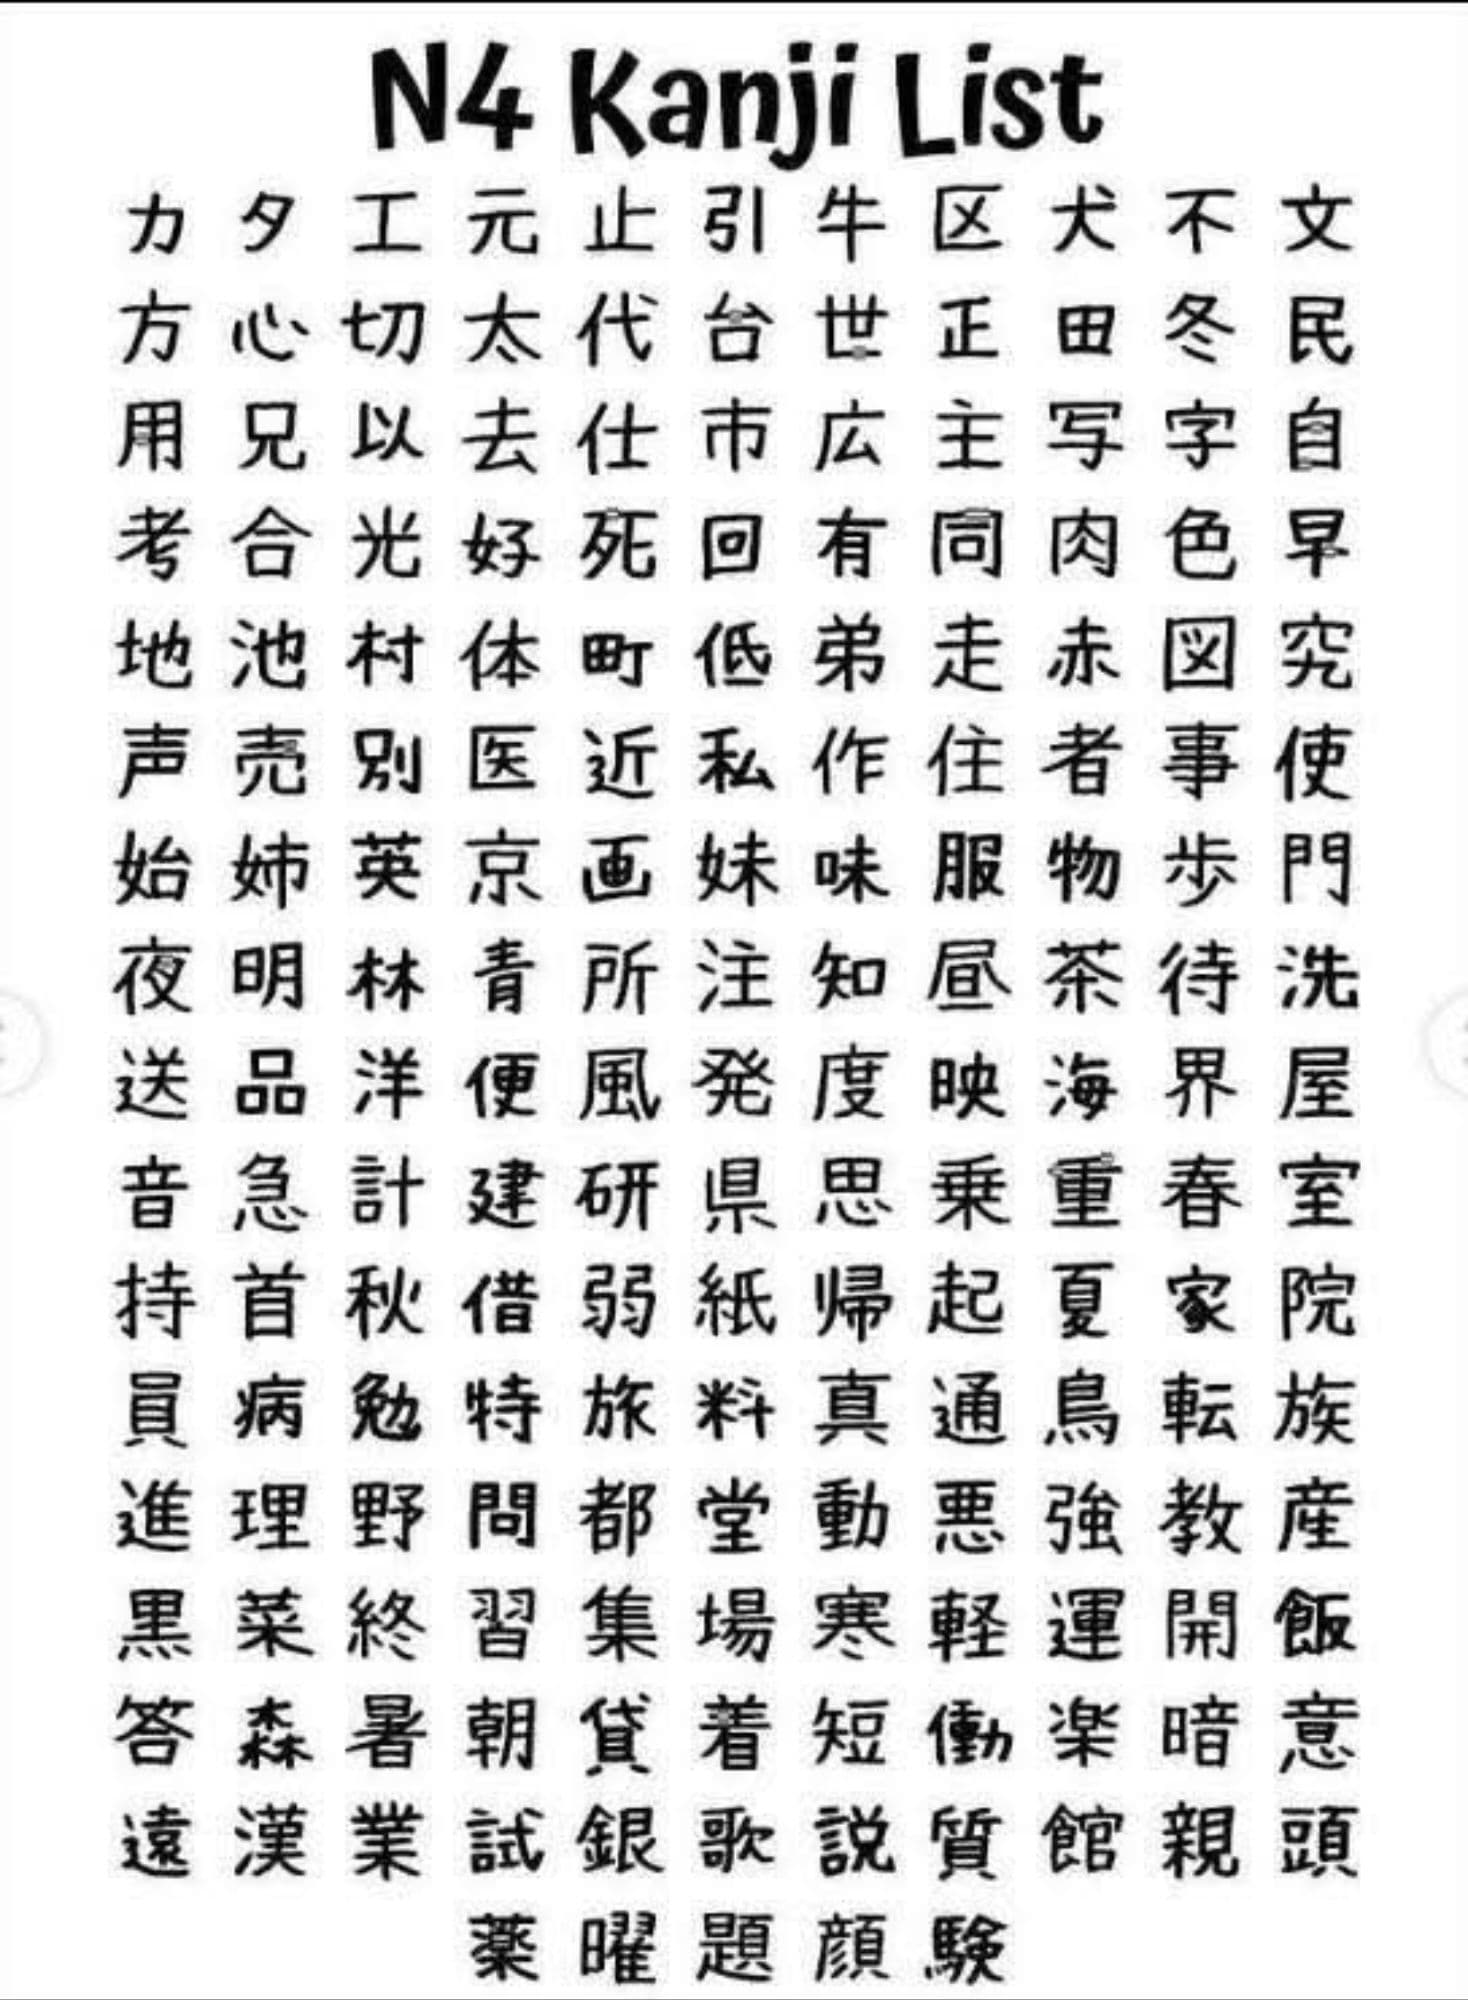 N4 Kanji List
力 夕 工 元 止 引 牛 区 犬 不 文
方 心 切 太 代 台 世 正 田 冬 民
用 兄 以 去 仕 市 広 主 写 字 自
考 合 光 好 死 回 有 同 肉 色 早
地 池 村 体 町 低 弟 走 赤 図 究
声 売 別 医 近 私 作 住 者 事 使
始 姉 英 京 画 妹 味 服 物 歩 門
夜 明 林 青 所 注 知 昼 茶 待 洗
送 品 洋 便 風 発 度 映 海 界 屋
音 急 計 建 研 県 思 乗 重 春 室
持 首 秋 借 弱 紙 帰 起 夏 家 院
員 病 勉 特 旅 料 真 通 鳥 転 族
進 理 野 問 都 堂 動 悪 強 教 産
黒 菜 終 習 集 場 寒 軽 運 開 飯
答 森 暑 朝 貸 着 短 働 楽 暗 意
遠 漢 業 試 銀 歌 説 質 館 親 頭
薬 曜 題 顔 験